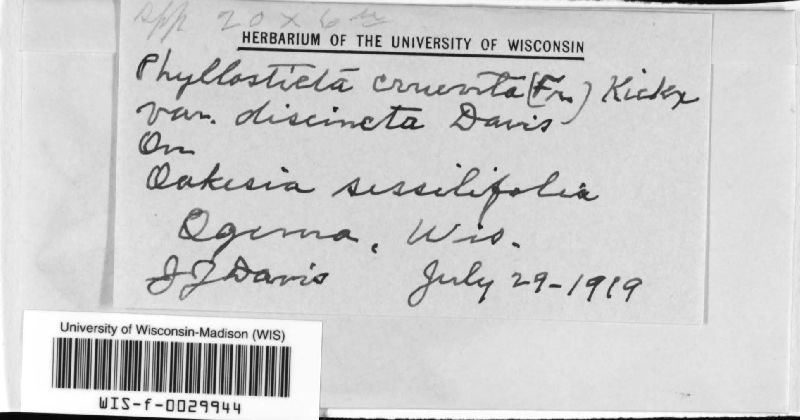 spp 20 x 6
HERBARIUM OF THE UNIVERSITY OF WISCONSIN
Phyllosticta cruenta (Fr.) Kickx
var. discincta Davis
On
Oakesia sessilifolia
Ogema, Wis.
J J Davis July 29-1919
University of Wisconsin-Madison (WIS)
WIS-f-0029944